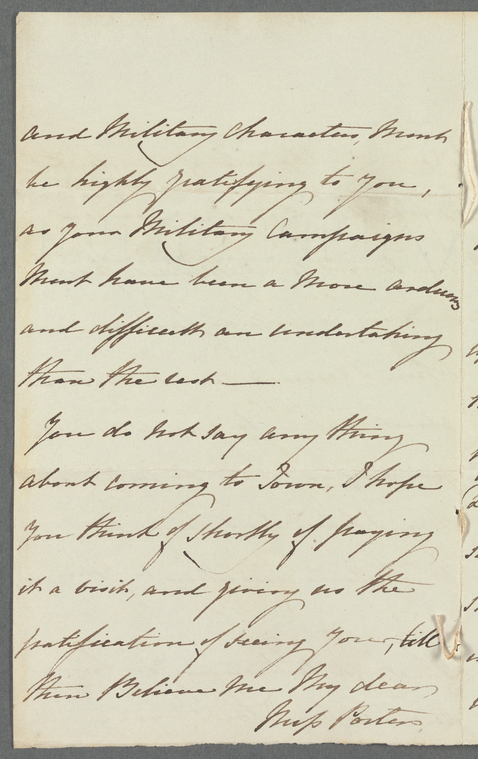 and Military Characters, Must
be highly gratifying to you,
as your Military Campaigns
Must have been a More arduous
and difficult an undertaking
than the rest —
You do not say any thing
about coming to Town, I hope
you think of shortly of paying
it a visit, and giving us the
gratification of seeing You, till
then Believe Me My dear
Miss Porter